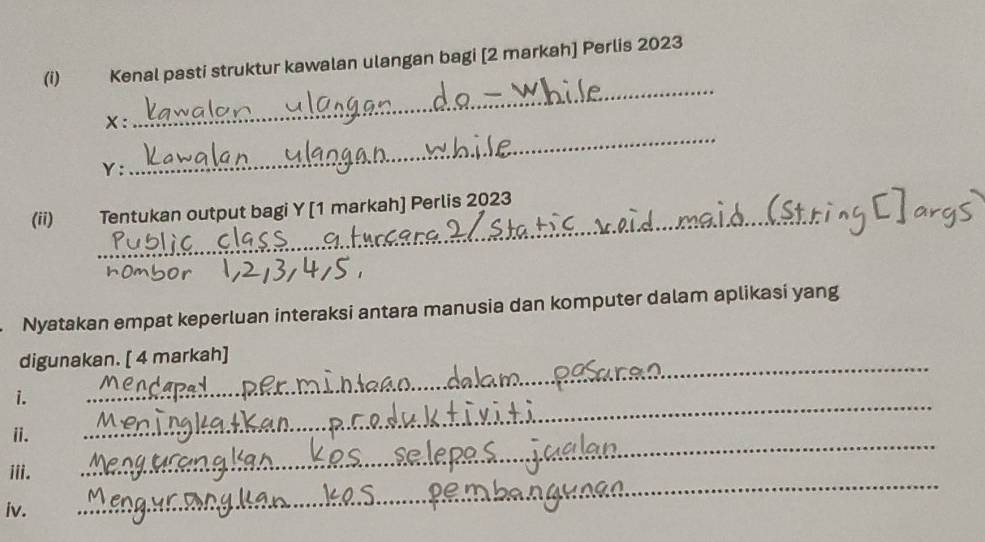 (i) Kenal pasti struktur kawalan ulangan bagi [2 markah] Perlis 2023
X: kawalan ulangan do - while
Y: kawalan ulangan while
(ii) Tentukan output bagi Y [1 markah] Perlis 2023
Public class aturcara 2/static void maid (string [] args)
nombor 1,2,3,4,5,
. Nyatakan empat keperluan interaksi antara manusia dan komputer dalam aplikasi yang
digunakan. [ 4 markah]
i. Mendapat permintaan dalam pasaran
ii. Meningkatkan produktiviti
iii. Mengurangkan kos selepas jualan
iv. Mengurangkan kos pembangunan